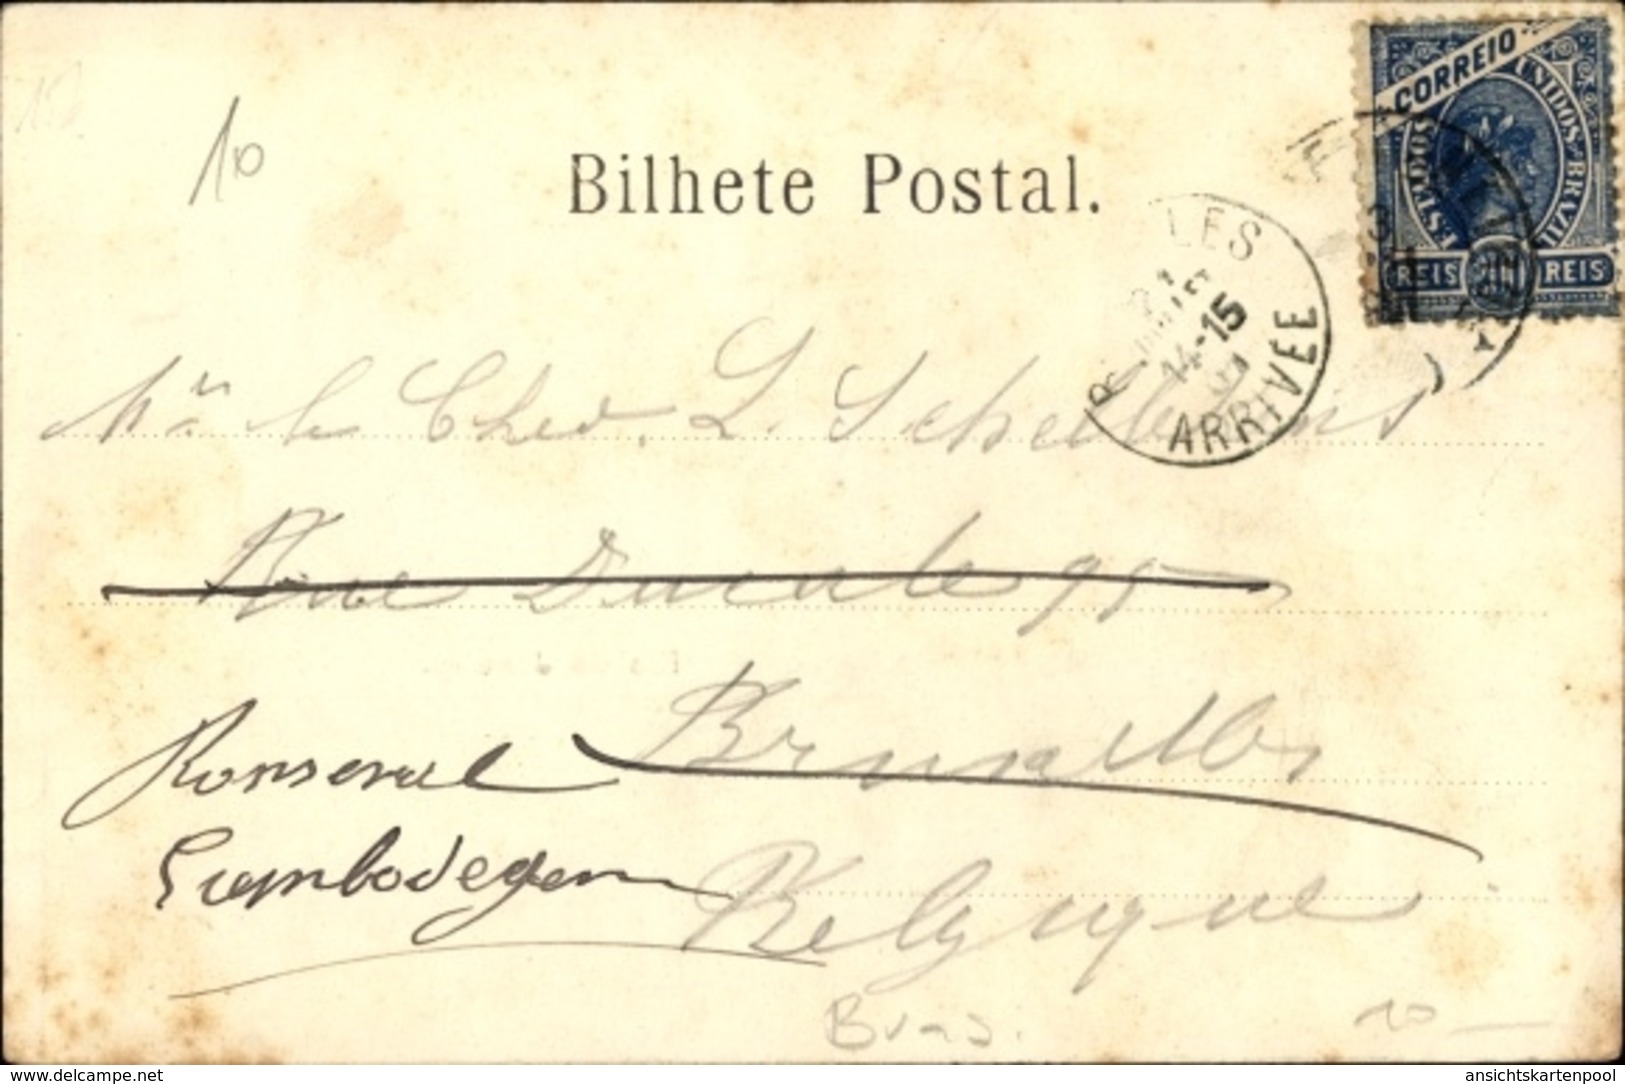 10
Bilhete Postal.
CORREIO
ESTADOS UNIDOS BRAZIL
REIS 200 REIS
14-15
ARRIVÉE
Mr le Chev. L. Schellekens
Rue Ducale 95
Bruxelles
Belgique
Bras.
10 —
www.delcampe.net
ansichtskartenpool